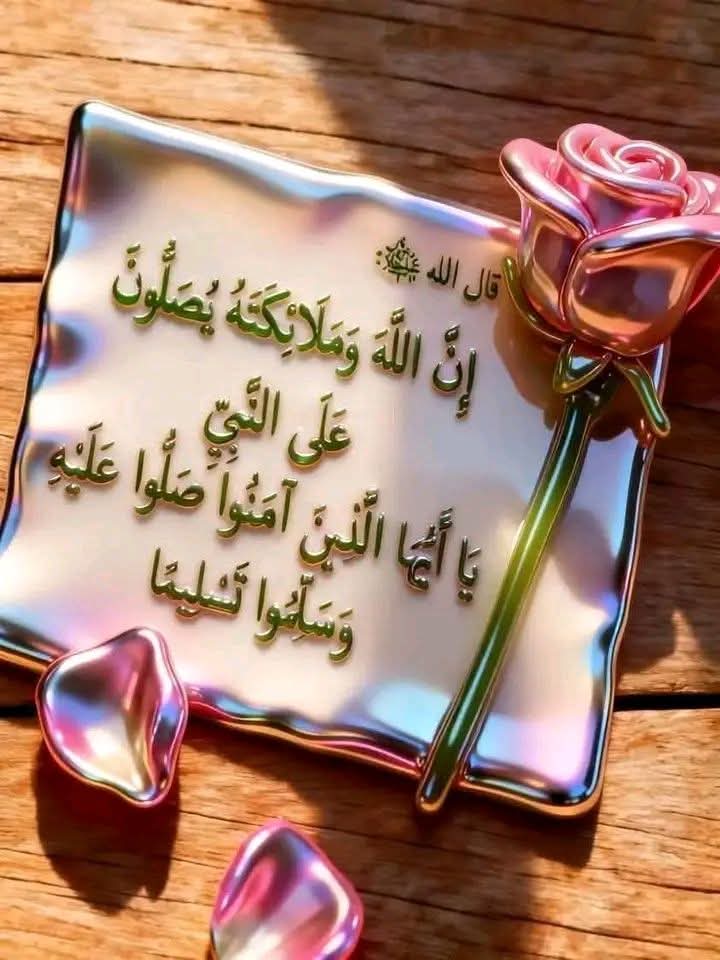 قال الله ﷻ:
إِنَّ اللَّهَ وَمَلَائِكَتَهُ يُصَلُّونَ
عَلَى النَّبِيِّ
يَا أَيُّهَا الَّذِينَ آمَنُوا صَلُّوا عَلَيْهِ
وَسَلِّمُوا تَسْلِيمًا